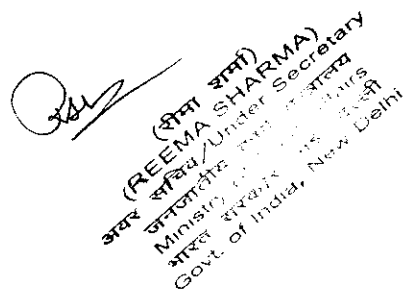 (रीमा शर्मा)
(REEMA SHARMA)
अवर सचिव/Under Secretary
जनजातीय
Ministry
भारत सरकार
Govt. of India, New Delhi